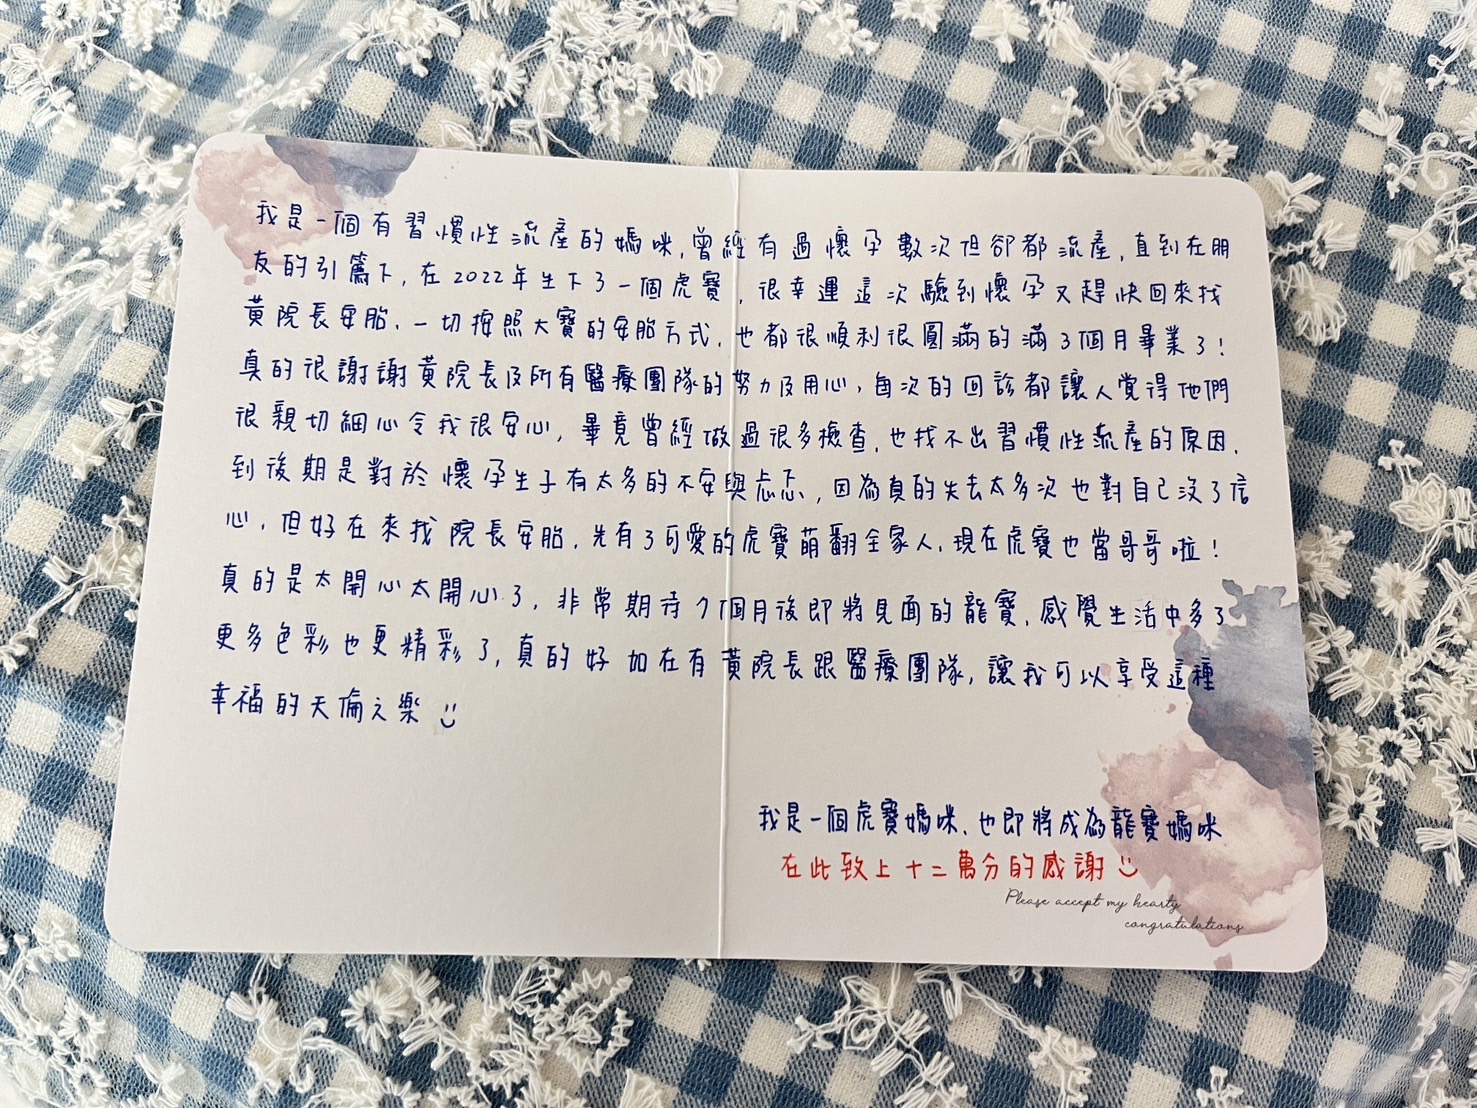 我是一個有習慣性流產的媽咪,曾經有過懷孕數次但卻都流產,直到在朋
友的引薦下,在2022年生下了一個虎寶,很幸運這次驗到懷孕又趕快回來找
黃院長安胎,一切按照大寶的安胎方式,也都很順利很圓滿的滿3個月畢業了!
真的很謝謝黃院長及所有醫療團隊的努力及用心,每次的回診都讓人覺得他們
很親切細心令我很安心,畢竟曾經做過很多檢查,也找不出習慣性流產的原因,
到後期是對於懷孕生子有太多的不安與忐忑,因為真的失去太多次也對自己沒了信
心,但好在來找院長安胎,先有了可愛的虎寶萌翻全家人,現在虎寶也當哥哥啦!
真的是太開心太開心了,非常期待7個月後即將見面的龍寶,感覺生活中多了
更多色彩也更精彩了,真的好加在有黃院長跟醫療團隊,讓我可以享受這種
幸福的天倫之樂
我是一個虎寶媽咪,也即將成為龍寶媽咪
在此致上十二萬分的感謝
Please accept my hearty
congratulations